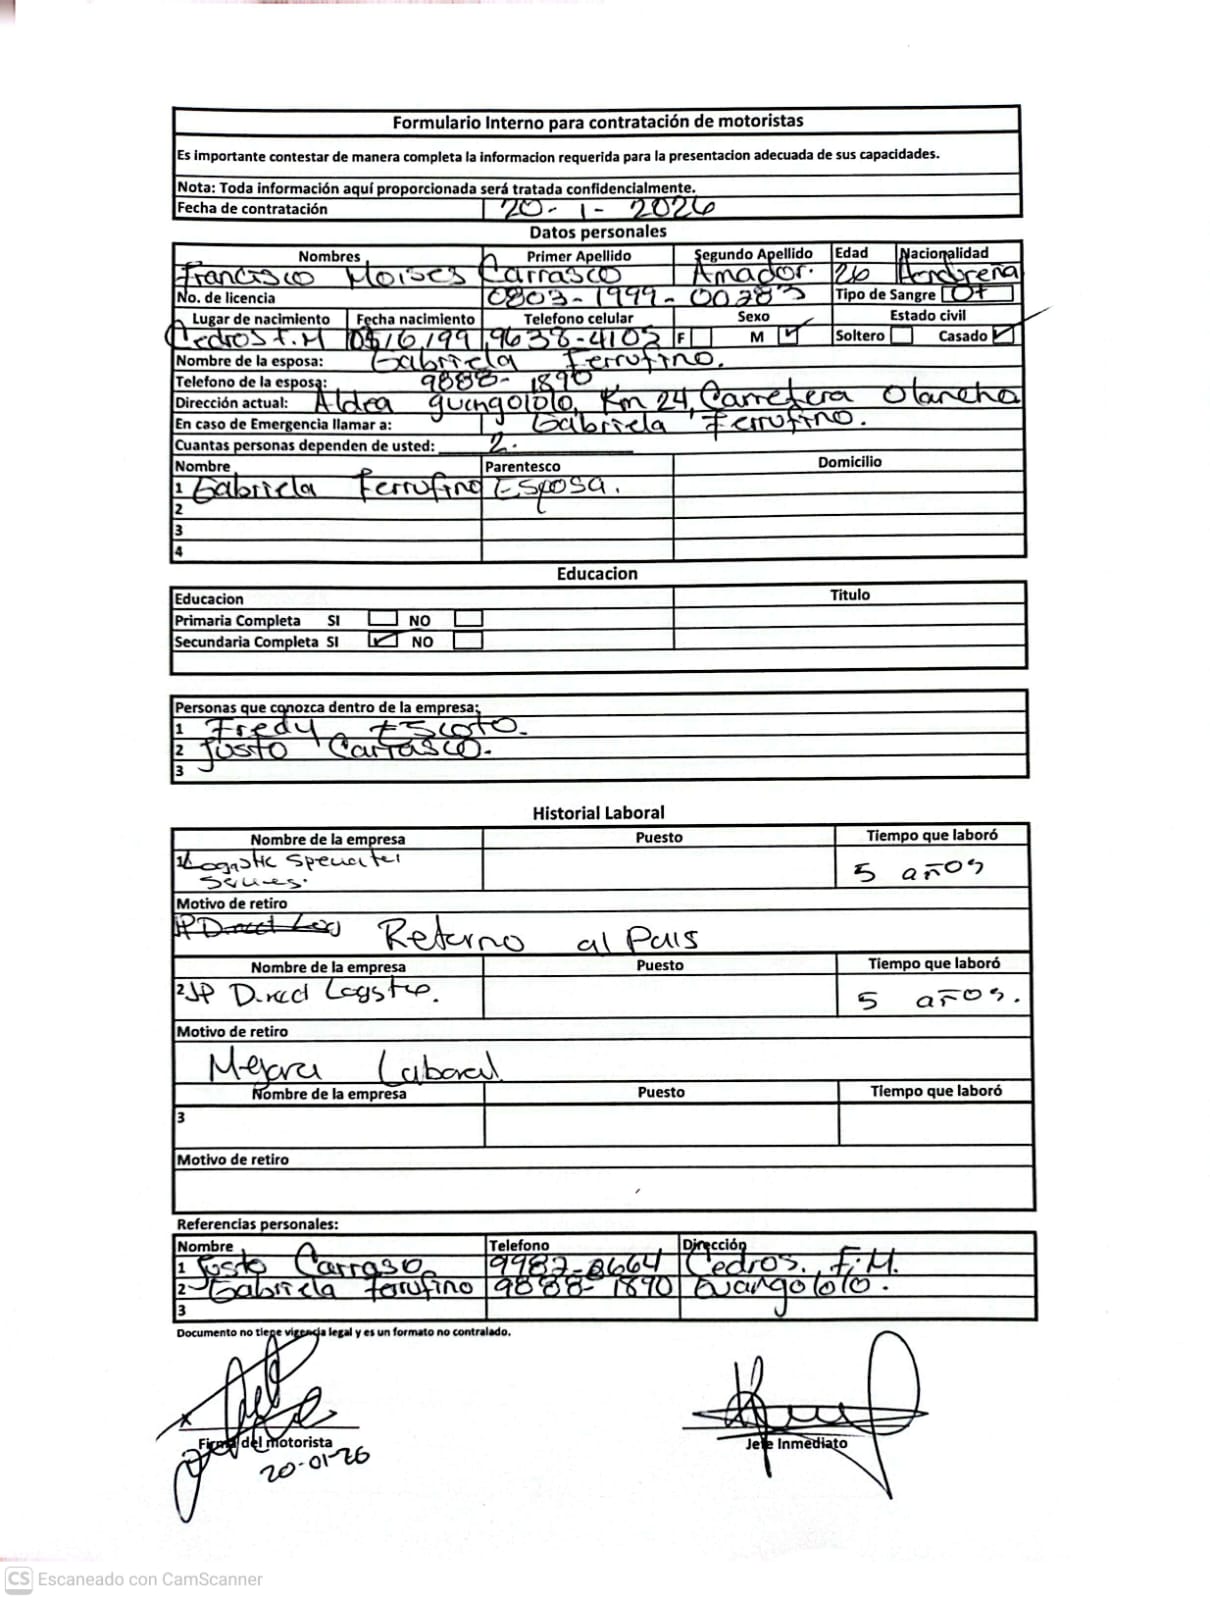 Formulario Interno para contratación de motoristas
Es importante contestar de manera completa la informacion requerida para la presentacion adecuada de sus capacidades.
Nota: Toda información aquí proporcionada será tratada confidencialmente.
Fecha de contratación 20-1-2026
Datos personales
Nombres Primer Apellido Segundo Apellido Edad Nacionalidad
Francisco Moises Carrasco Amador. 26 Hondureña
No. de licencia 0803-1999-00283 Tipo de Sangre O+
Lugar de nacimiento Fecha nacimiento Telefono celular Sexo Estado civil
Cedros F.M 9638-4105 F M ✓ Soltero Casado ✓
Nombre de la esposa: Gabriela Ferrufino.
Telefono de la esposa: 9888-1890
Dirección actual: Aldea guangololo, Km 24, Carretera Olancho
En caso de Emergencia llamar a: Gabriela Ferrufino.
Cuantas personas dependen de usted: 2.
Nombre Parentesco Domicilio
1 Gabriela Ferrufino Esposa.
2
3
4
Educacion
Educacion Titulo
Primaria Completa SI NO
Secundaria Completa SI ✓ NO
Personas que conozca dentro de la empresa:
1 Fredy Escoto.
2 Justo Carrasco.
3
Historial Laboral
Nombre de la empresa Puesto Tiempo que laboró
1 5 años
Motivo de retiro
Retorno al Pais
Nombre de la empresa Puesto Tiempo que laboró
2 JP Direct Logstic. 5 años.
Motivo de retiro
Mejora Laboral
Nombre de la empresa Puesto Tiempo que laboró
3
Motivo de retiro
Referencias personales:
Nombre Telefono Dirección
1 Justo Carraso. 9982-8664 Cedros. F.M.
2 Gabriela Ferrufino 9888-1890 Guangololo.
3
Documento no tiene vigencia legal y es un formato no contralado.
Firma del motorista Jefe Inmediato
20-01-26
CS Escaneado con CamScanner